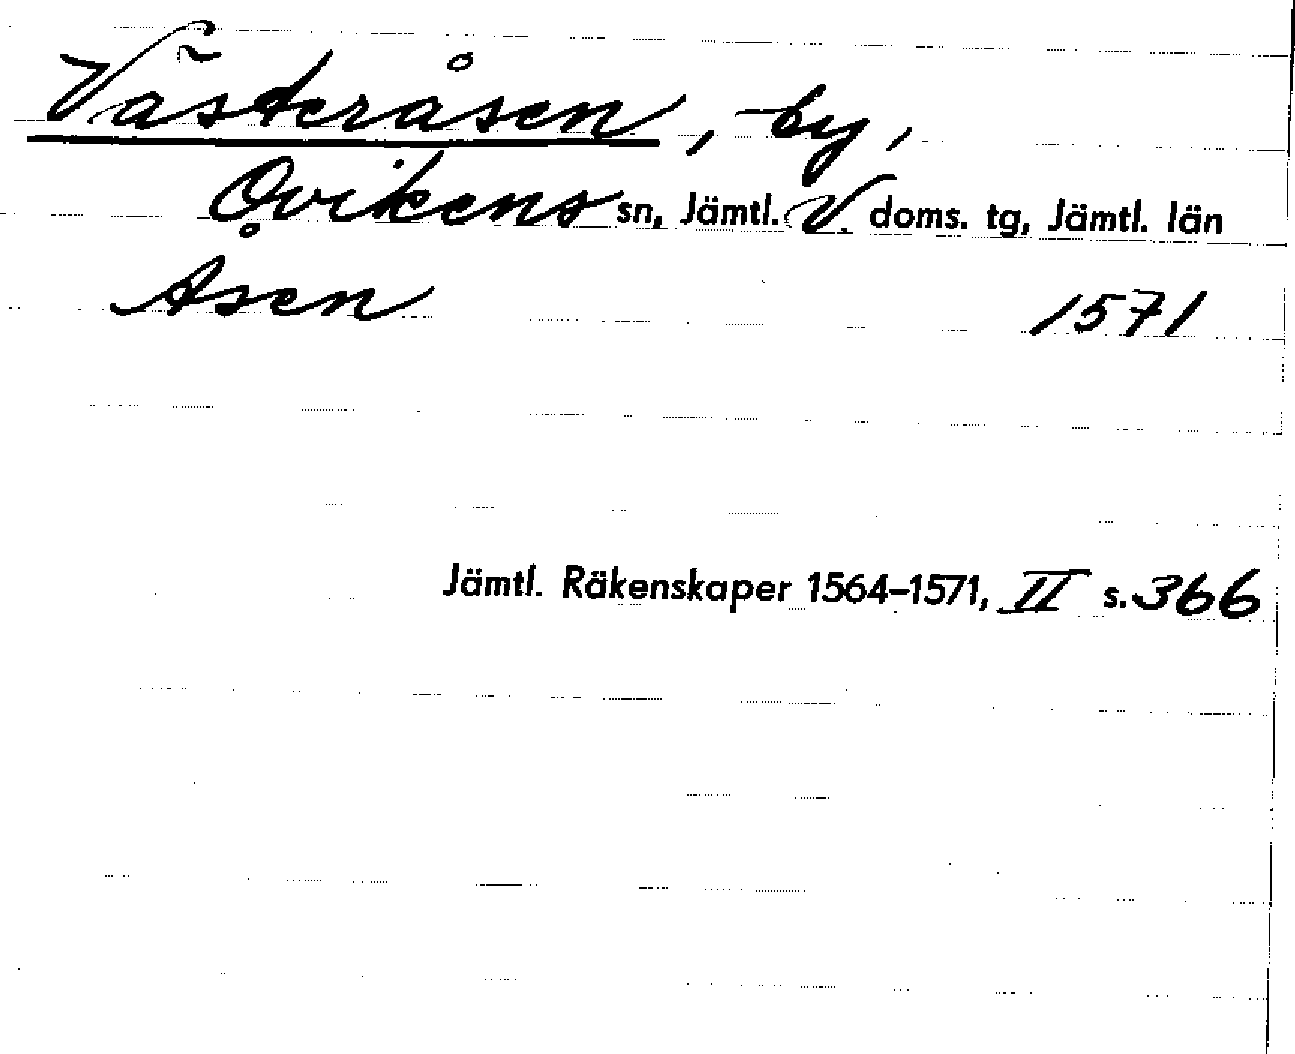 Västeråsen, by,
Ovikens sn, Jämtl. V. doms. tg, Jämtl. län
Åsen 1571
Jämtl. Räkenskaper 1564–1571, II s. 366